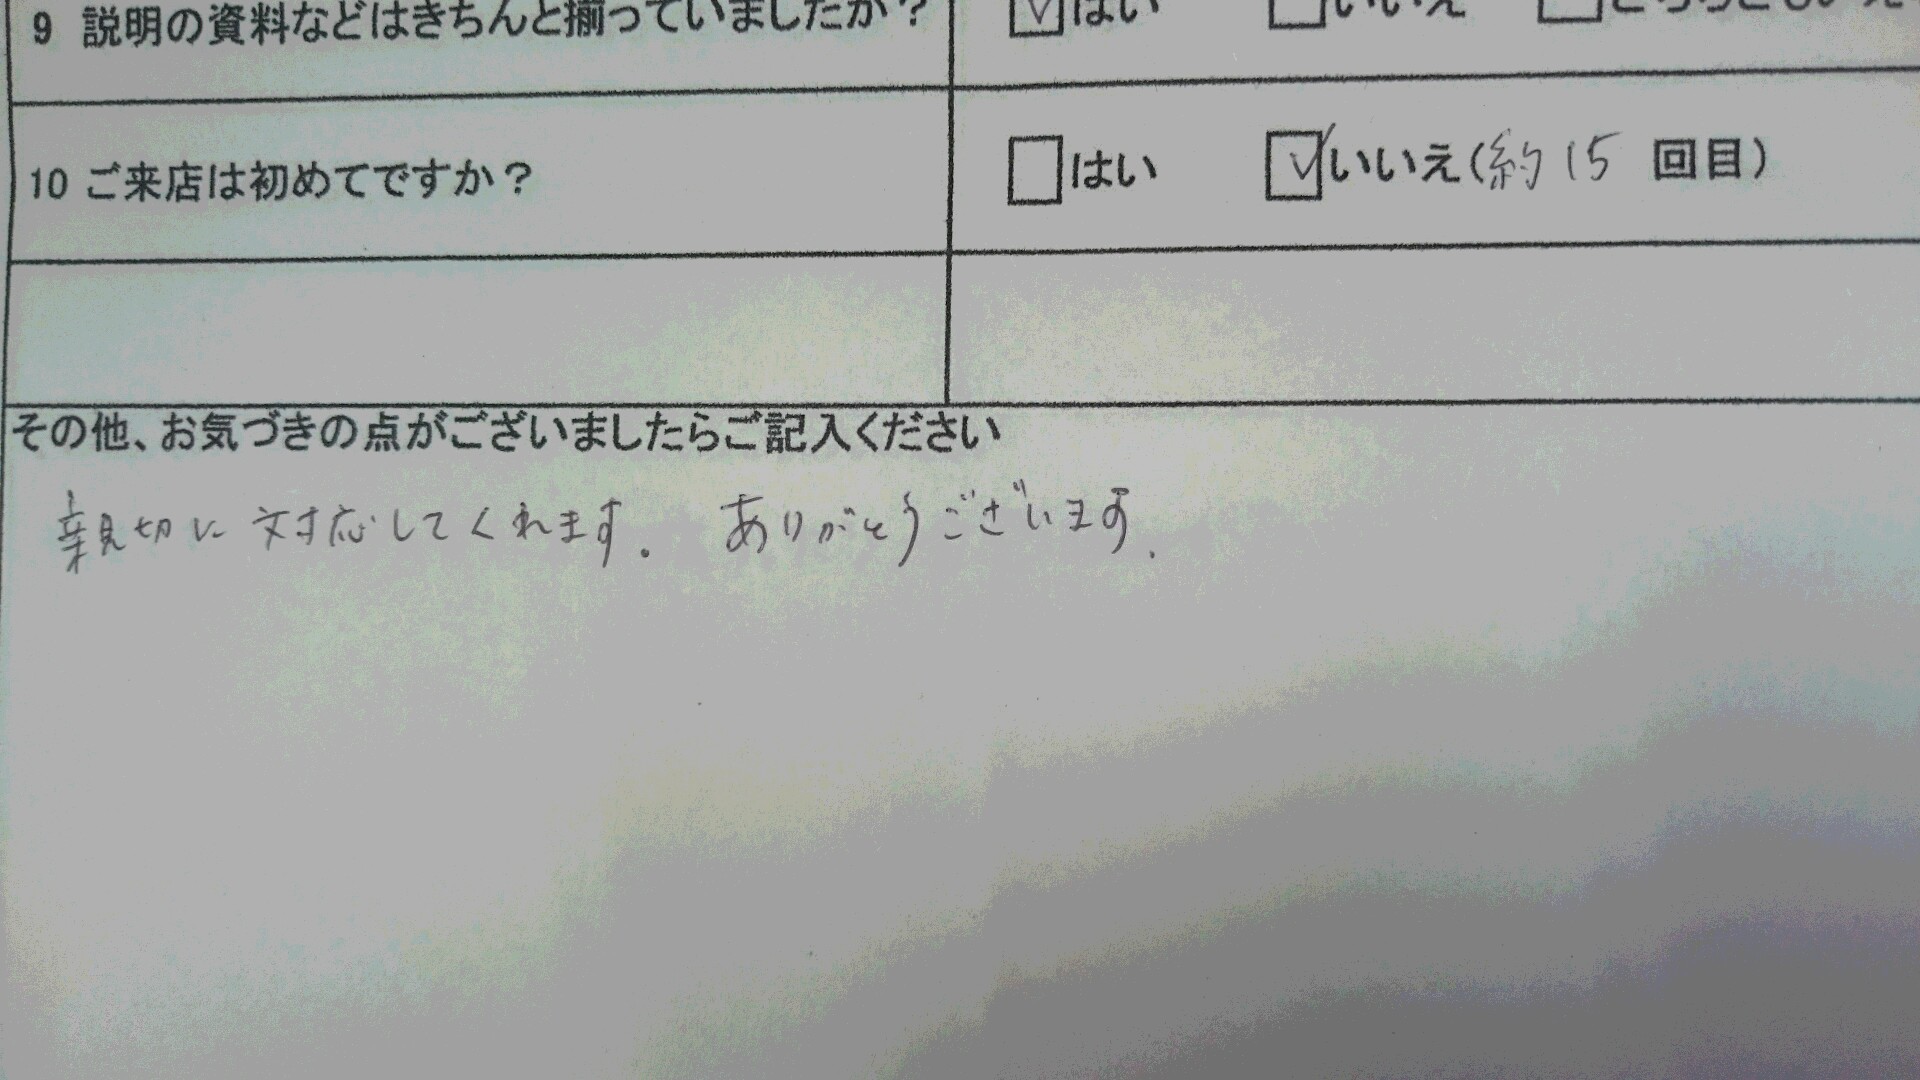 9 説明の資料などはきちんと揃っていましたか? ☑はい □いいえ □どちらともいえ
10 ご来店は初めてですか? □はい ☑いいえ(約15 回目)
その他、お気づきの点がございましたらご記入ください
親切に対応してくれます. ありがとうございます.